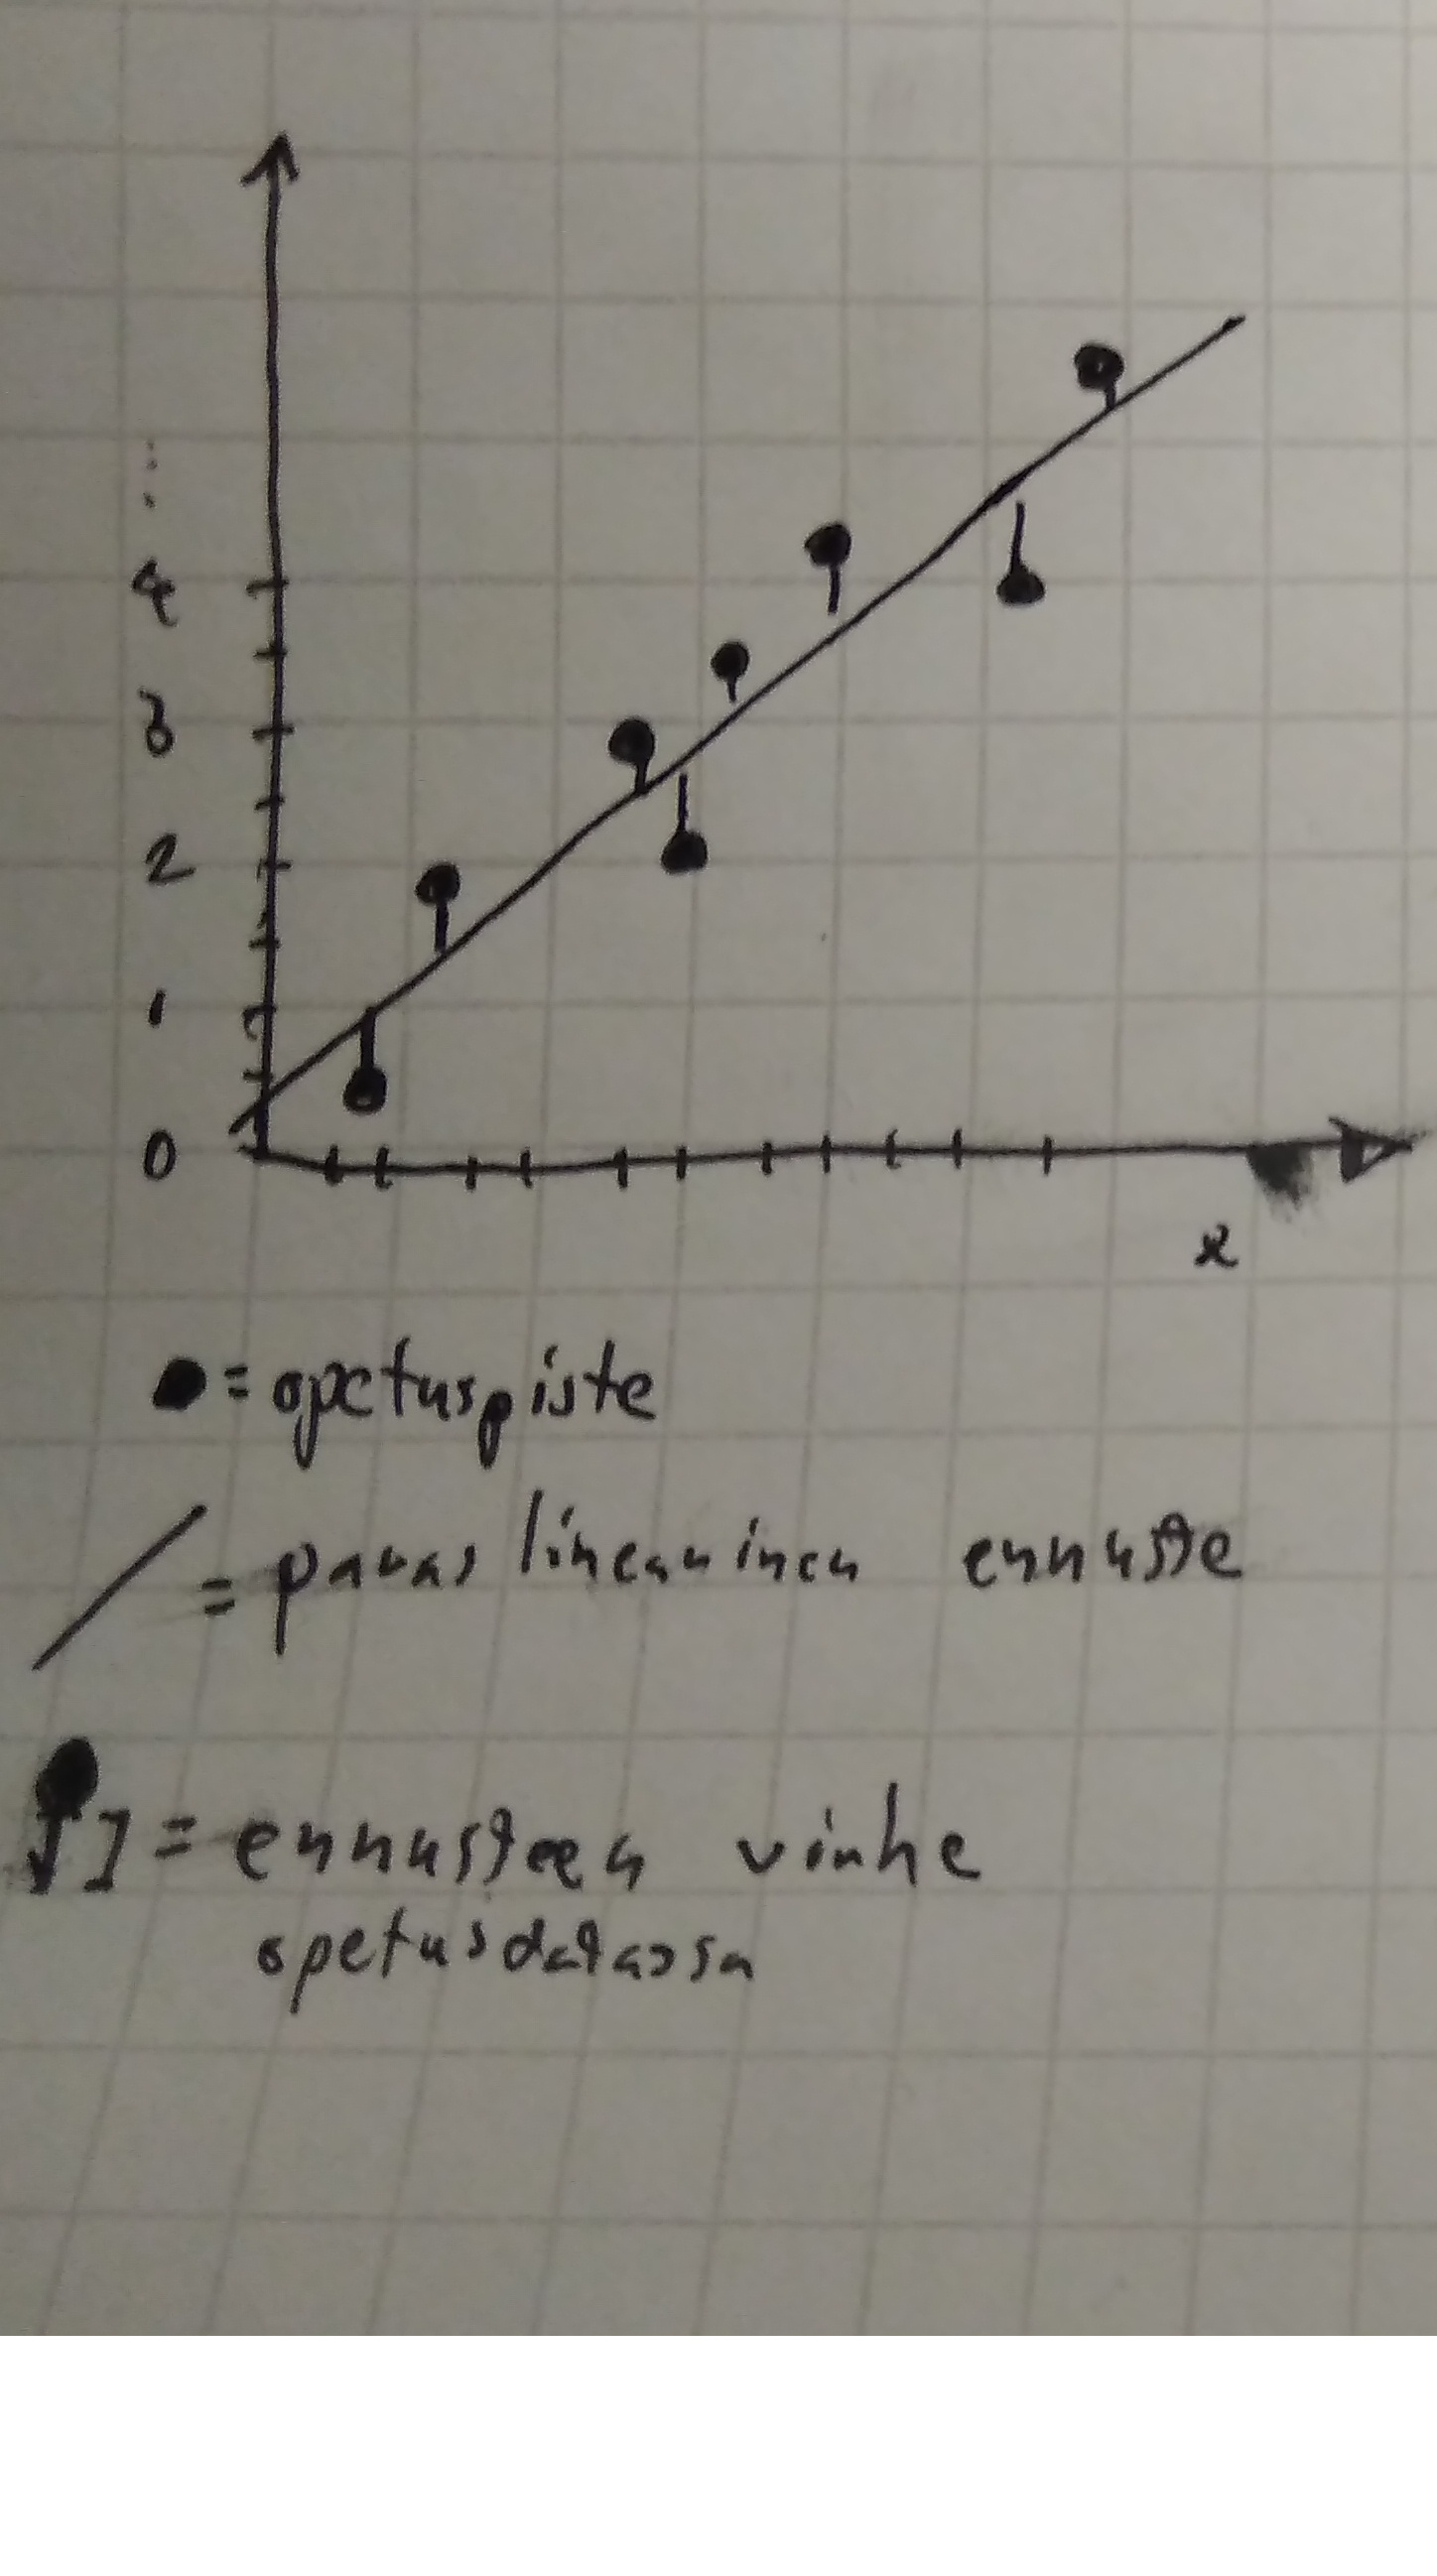 ⋮
4
3
2
1
0
x
● = opetuspiste
/ = paras lineaarinen ennuste
] = ennusteen virhe
opetusdatassa